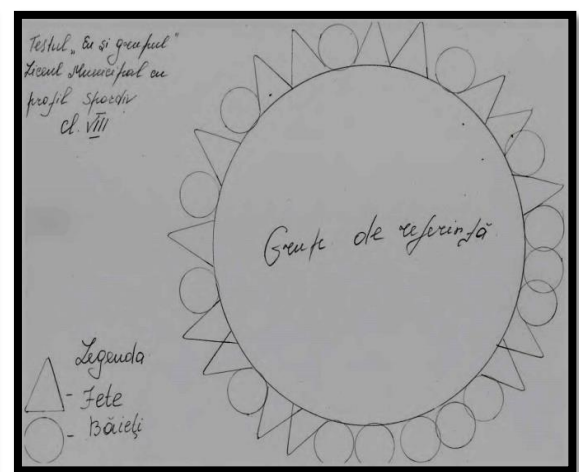 Testul „Eu și grupul"
Liceul Municipal cu
profil Sportiv
cl. VIII
Grup de referință
Legenda
- Fete
- Băieți